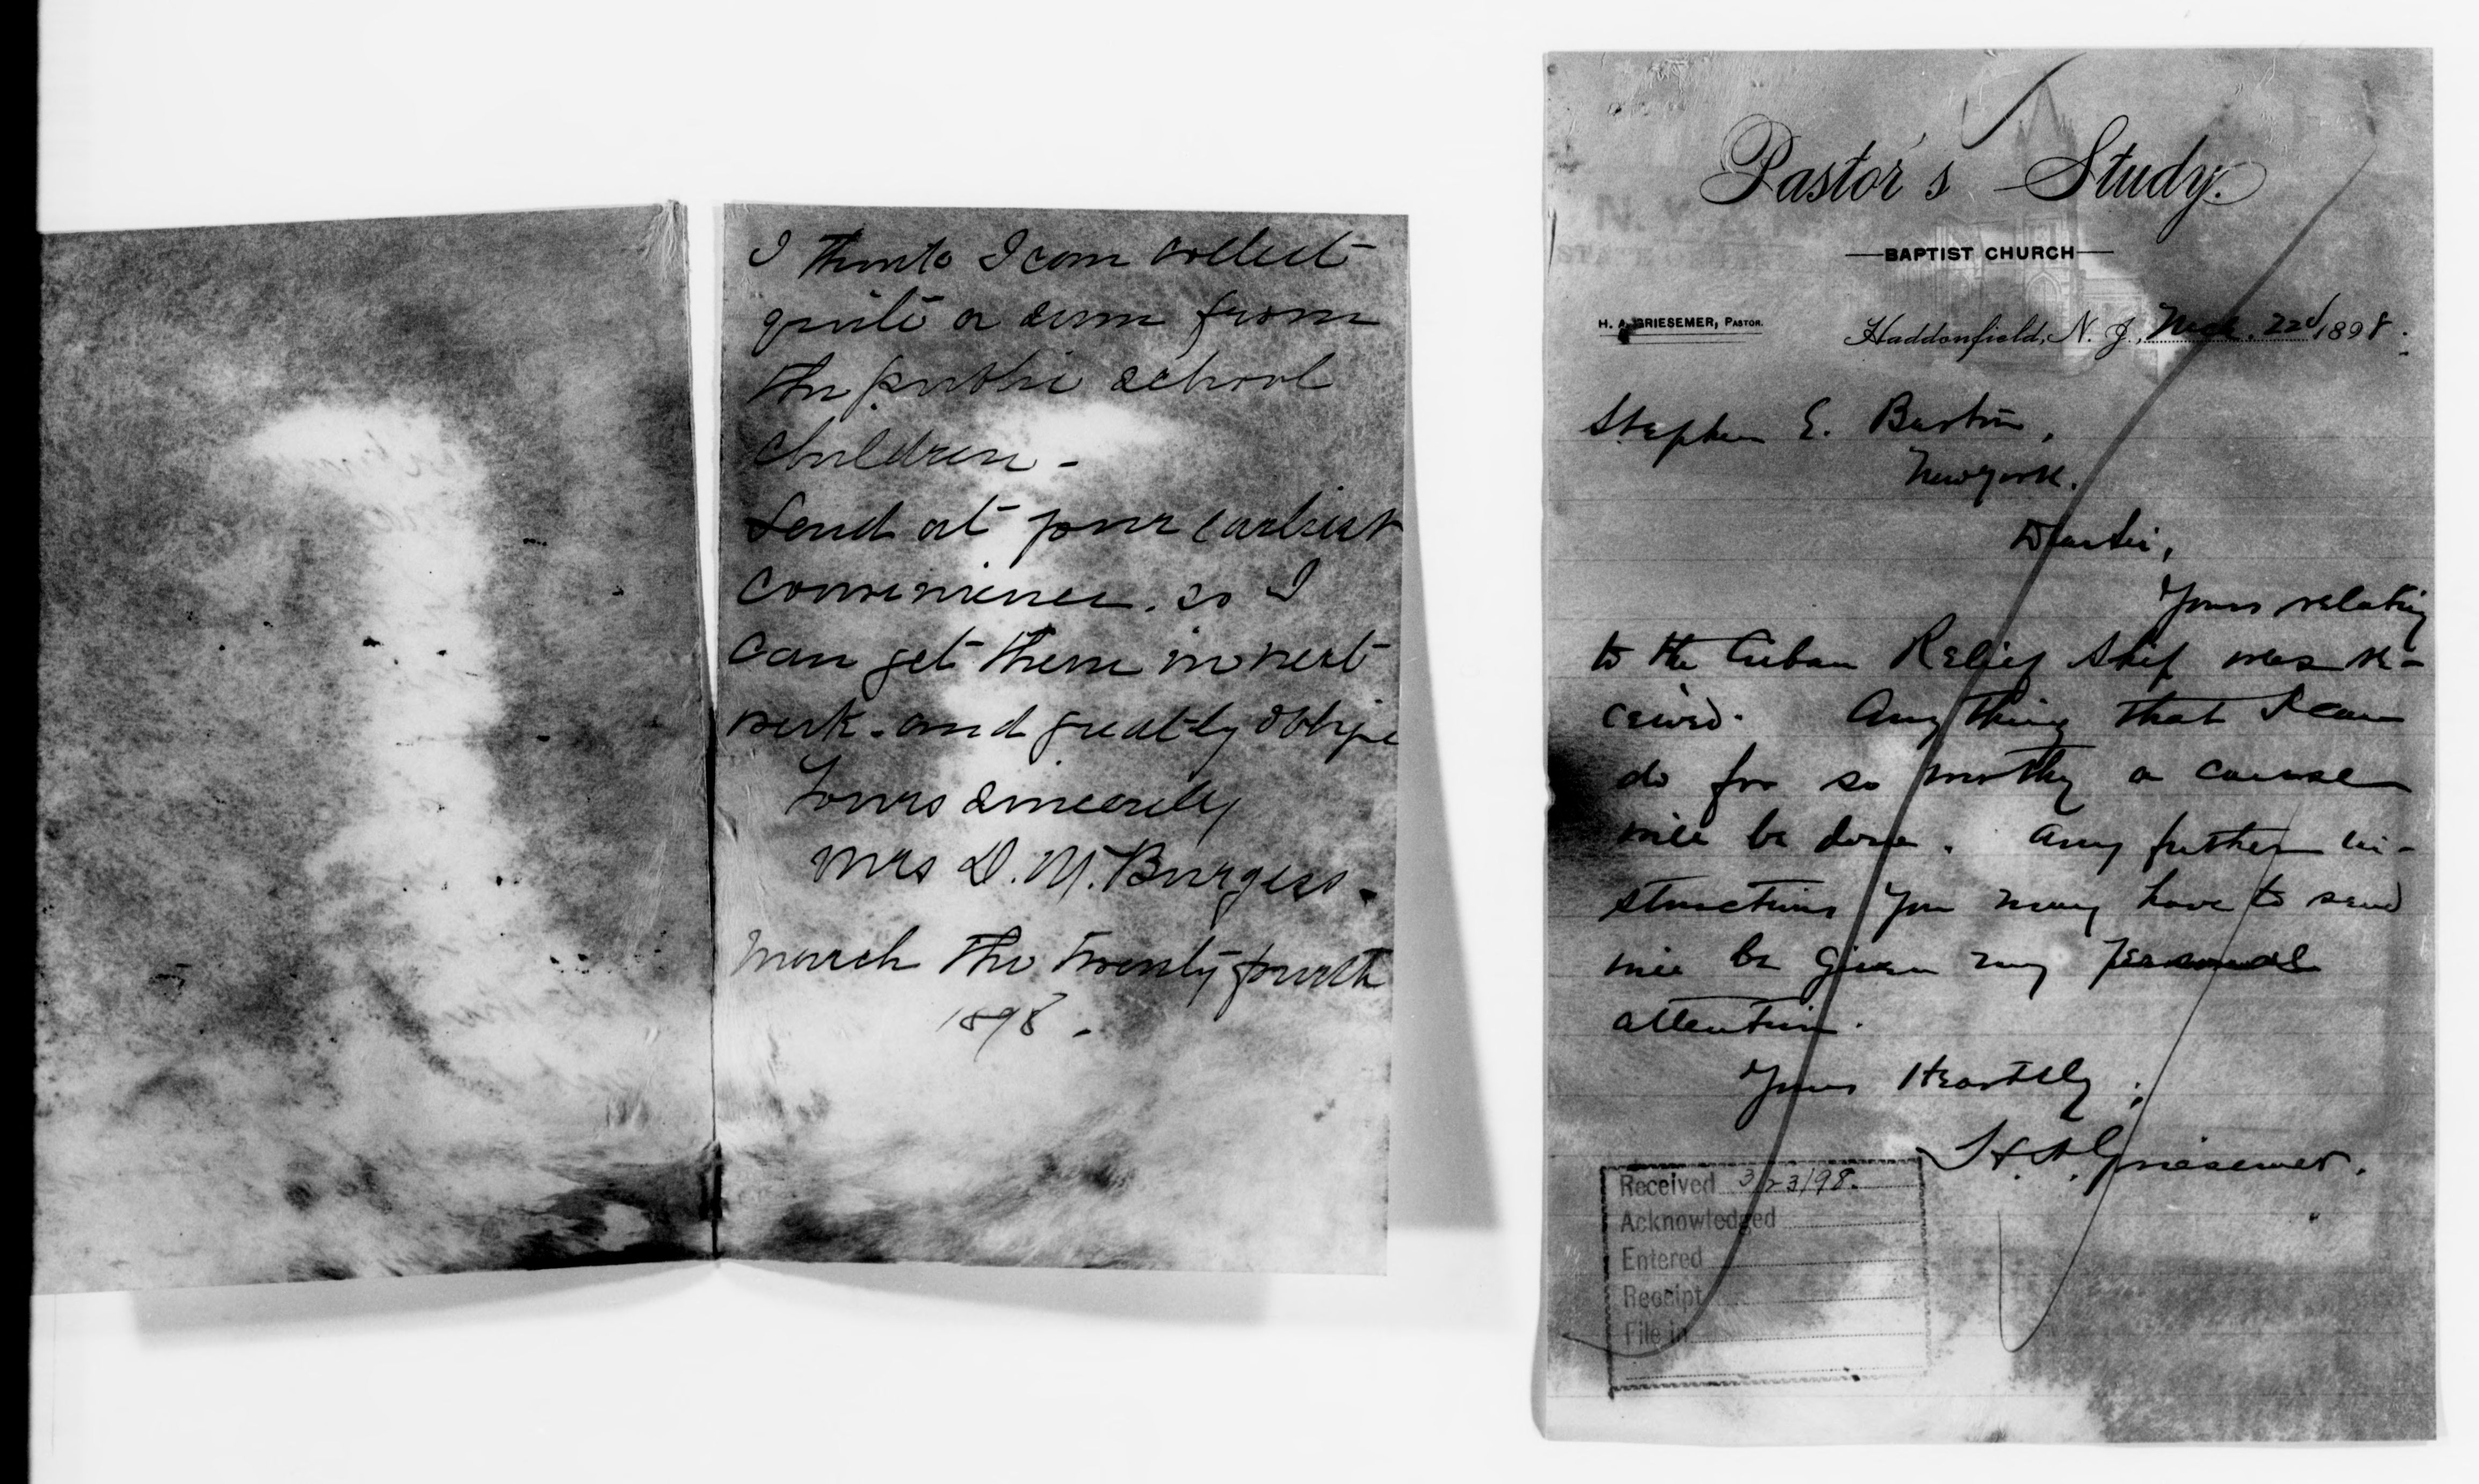 I think I can collect
quite a sum from
the public school
children -
Send at your earliest
convenience. so I
can get them in next
week. and greatly oblige
Yours sincerely
Mrs D. M. Burgess.
March the twenty fourth
1898 -
Pastor's Study.
BAPTIST CHURCH
H. A. GRIESEMER, PASTOR.
Haddonfield, N. J., Mch. 22d 1898.
Stephen E. Barton,
New York.
Dear Sir,
Yours relating
to the Cuban Relief Ship was re-
ceived. Any thing that I can
do for so worthy a cause
will be done. Any further in-
structions you may have to send
will be given my personal
attention.
Yours Heartily,
H. A. Griesemer.
Received 3/23/98.
Acknowledged
Entered
Receipt
File in